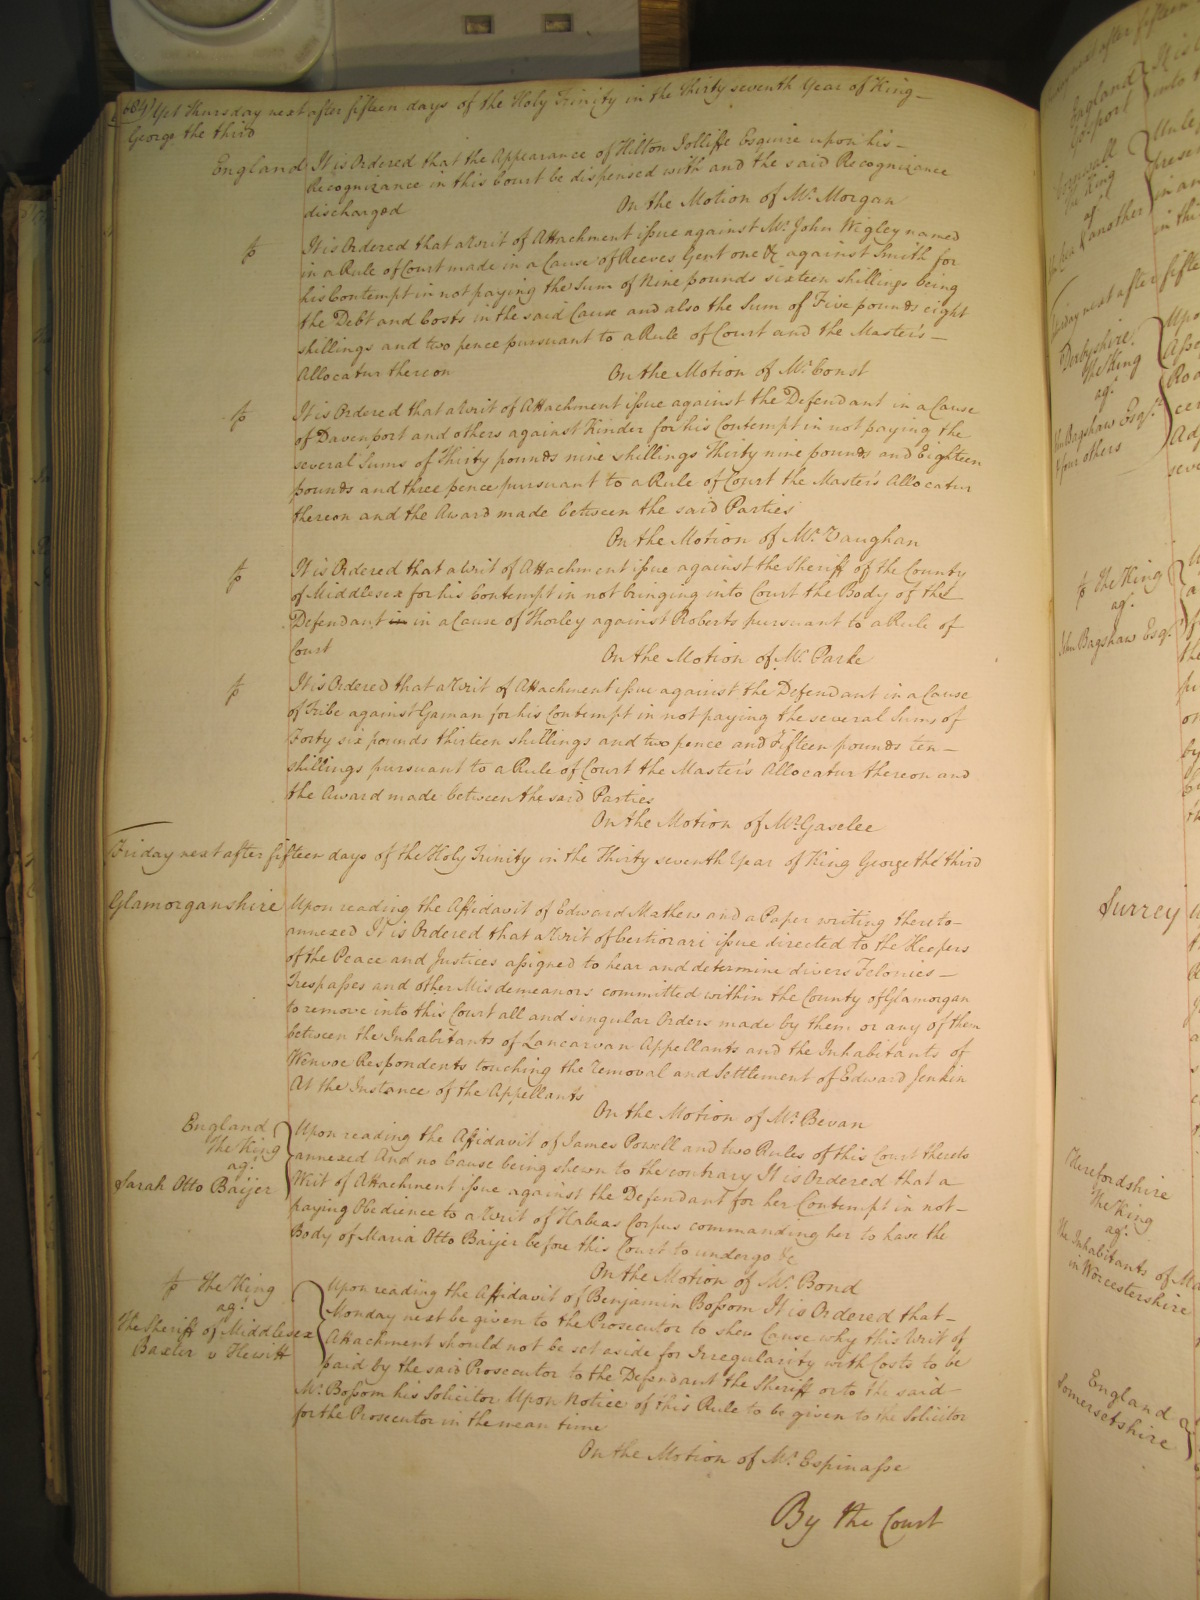 684 Yet Thursday next after fifteen days of the Holy Trinity in the Thirty seventh Year of King
George the third
England It is Ordered that the Appearance of Hilton Jolliffe Esquire upon his
Recognizance in this Court be dispensed with and the said Recognizance
discharged On the Motion of Mr. Morgan
It is Ordered that a Writ of Attachment issue against Mr. John Wigley named
in a Rule of Court made in a Cause of Reeves Gent one &c against Smith for
his Contempt in not paying the Sum of Nine pounds sixteen shillings being
the Debt and Costs in the said Cause and also the Sum of Five pounds eight
shillings and two pence pursuant to a Rule of Court and the Master's
Allocatur thereon On the Motion of Mr. Const
It is Ordered that a Writ of Attachment issue against the Defendant in a Cause
of Davenport and others against Kinder for his Contempt in not paying the
several Sums of Thirty pounds nine shillings Thirty nine pounds and Eighteen
pounds and three pence pursuant to a Rule of Court the Master's Allocatur
thereon and the Award made between the said Parties
On the Motion of Mr. Vaughan
It is Ordered that a Writ of Attachment issue against the Sheriff of the County
of Middlesex for his Contempt in not bringing into Court the Body of the
Defendant in in a Cause of Thorley against Roberts pursuant to a Rule of
Court On the Motion of Mr. Parke
It is Ordered that a Writ of Attachment issue against the Defendant in a Cause
of Tribe against Gaman for his Contempt in not paying the several Sums of
Forty six pounds thirteen shillings and two pence and Fifteen pounds ten
shillings pursuant to a Rule of Court the Master's Allocatur thereon and
the Award made between the said Parties
On the Motion of Mr. Gaselee
Friday next after fifteen days of the Holy Trinity in the Thirty seventh Year of King George the third
Glamorganshire Upon reading the Affidavit of Edward Mathew and a Paper writing thereto
annexed It is Ordered that a Writ of Certiorari issue directed to the Keepers
of the Peace and Justices assigned to hear and determine divers Felonies
Trespasses and other Misdemeanors committed within the County of Glamorgan
to remove into this Court all and singular Orders made by them or any of them
between the Inhabitants of Lancarvan Appellants and the Inhabitants of
Wenvoe Respondents touching the removal and Settlement of Edward Jenkin
At the Instance of the Appellants
On the Motion of Mr. Bevan
England
The King
agt.
Sarah Otto Baijer
Upon reading the Affidavit of James Powell and two Rules of this Court thereto
annexed And no Cause being shewn to the contrary It is Ordered that a
Writ of Attachment issue against the Defendant for her Contempt in not
paying Obedience to a Writ of Habeas Corpus commanding her to have the
Body of Maria Otto Baijer before this Court to undergo &c
On the Motion of Mr. Bond
The King
agt.
The Sheriff of Middlesex
Baxter v Hewitt
Upon reading the Affidavit of Benjamin Bossom It is Ordered that
Monday next be given to the Prosecutor to shew Cause why this Writ of
Attachment should not be set aside for Irregularity with Costs to be
paid by the said Prosecutor to the Defendant the Sheriff or to the said
Mr. Bossom his Solicitor Upon Notice of this Rule to be given to the Solicitor
for the Prosecutor in the mean time
On the Motion of Mr. Espinasse
By the Court
England
Gosport
Cornwall
The King
agt.
& another
Friday next after fifte
Derbyshire
The King
agt.
Wm. Bagshaw Esqr.
& four others
The King
agt.
John Bagshaw Esqr.
Surrey
Herefordshire
The King
agt.
The Inhabitants of
in Worcestershire
England
Somersetshire